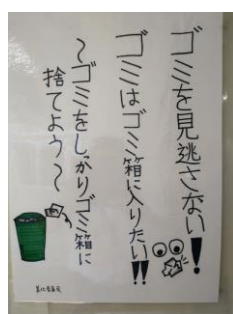 ゴミを見逃さない!
ゴミはゴミ箱に入りたい!!
〜ゴミをしっかりゴミ箱に
捨てよう〜
美化委員会